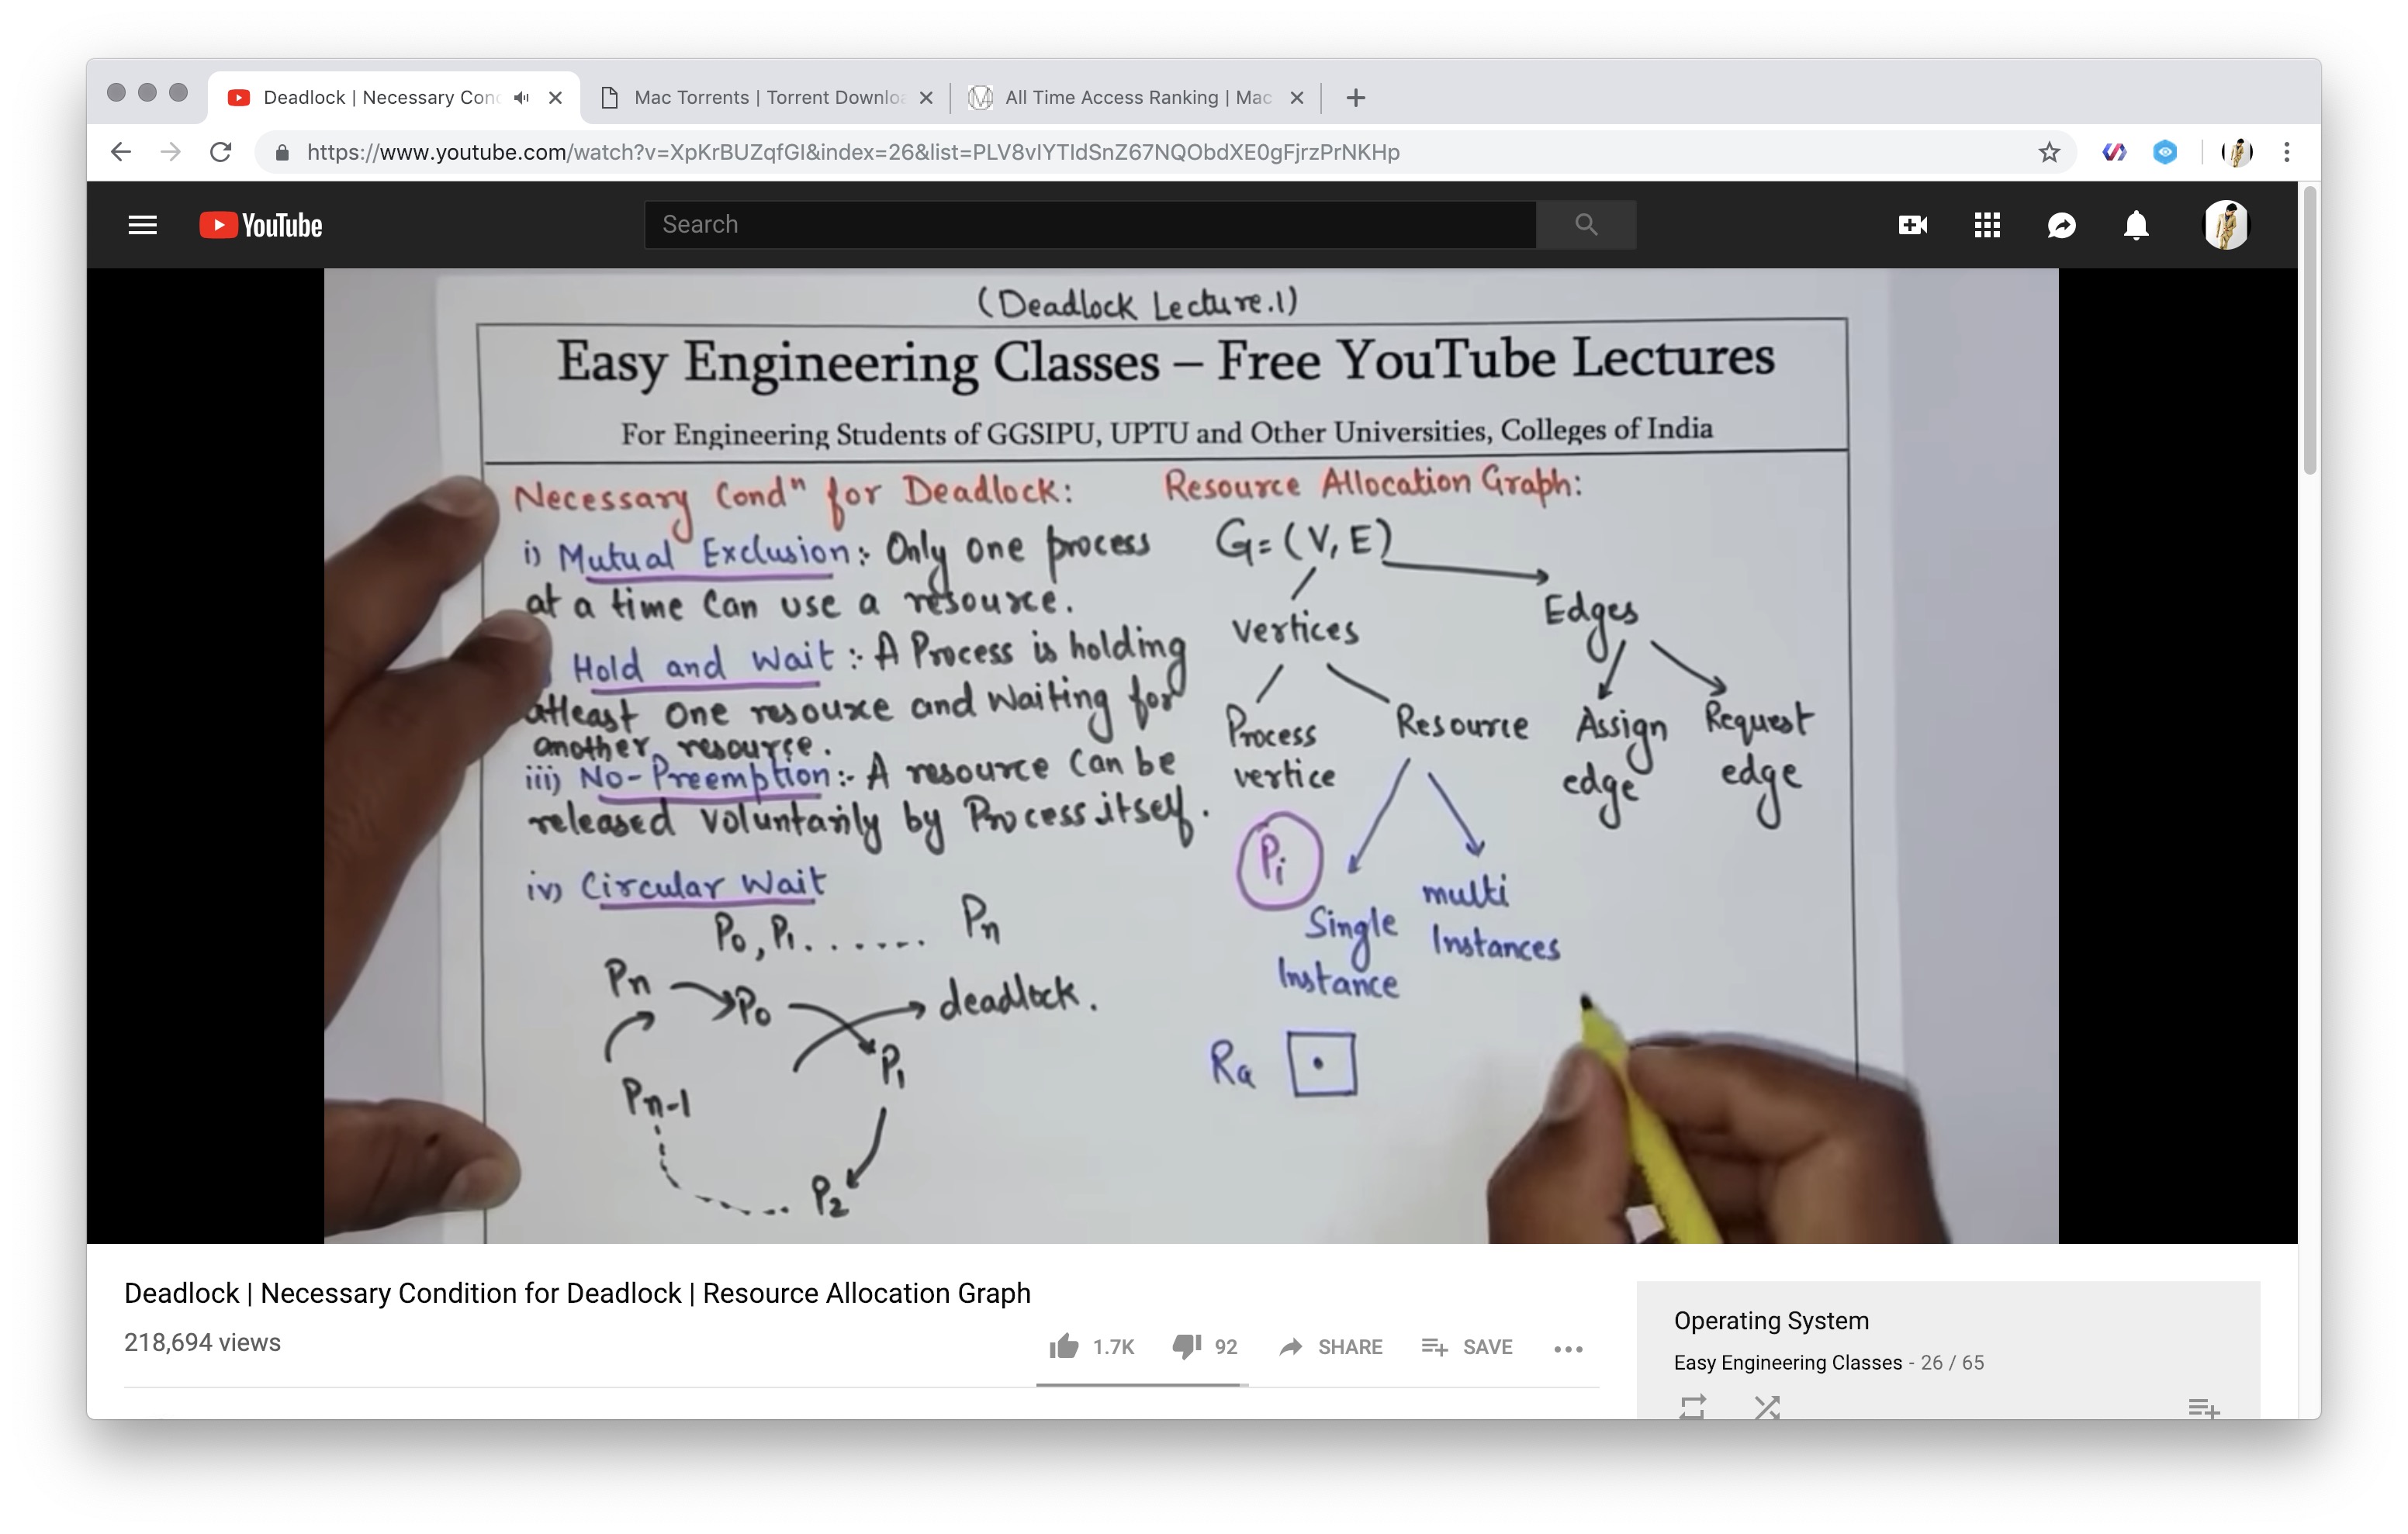 Deadlock | Necessary Con
Mac Torrents | Torrent Downlo
All Time Access Ranking | Mac
https://www.youtube.com/watch?v=XpKrBUZqfGI&index=26&list=PLV8vIYTIdSnZ67NQObdXE0gFjrzPrNKHp
YouTube
Search
(Deadlock Lecture.1)
Easy Engineering Classes – Free YouTube Lectures
For Engineering Students of GGSIPU, UPTU and Other Universities, Colleges of India
Necessary Condⁿ for Deadlock:
i) Mutual Exclusion:- Only one process
at a time can use a resource.
Hold and Wait:- A Process is holding
atleast one resource and waiting for
another resource.
iii) No-Preemption:- A resource can be
released voluntarily by Process itself.
iv) Circular Wait
P0, P1....... Pn
Pn P0 deadlock.
P1
Pn-1
P2
Resource Allocation Graph:
G=(V, E)
Edges
Vertices
Process Resource Assign Request
vertice edge edge
Pi
Single multi
Instance Instances
Ra
Deadlock | Necessary Condition for Deadlock | Resource Allocation Graph
218,694 views
1.7K 92 SHARE SAVE
Operating System
Easy Engineering Classes - 26 / 65